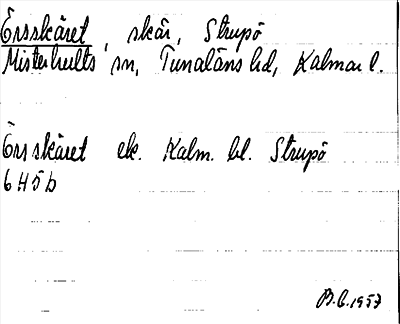 Örsskäret, skär, Strupö
Misterhults sn, Tunaläns hd, Kalmar l.
Örsskäret ek. Kalm. bl. Strupö
6H5b
B.C. 1957